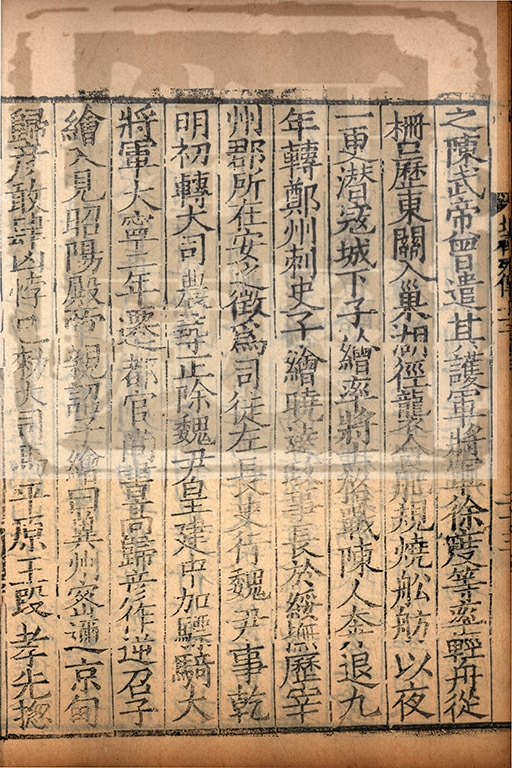 之陳武帝曾遣其護軍將軍徐度等率輕舟從
柵口歷東關入巢湖徑襲合肥規燒舩舫以夜
一更潜寇城下子繪率將士格戰陳人奔退九
年轉鄭州刺史子繪曉達政事長於綏撫歷宰
州郡所在安之徵為司徒左長史行魏尹事乾
明初轉大司農尋正除魏尹皇建中加驃騎大
將軍大寧二年遷都官尚書高歸彥作逆召子
繪入見昭陽殿帝親詔子繪曰冀州密邇京甸
歸彥敢肆凶悖已勑大司馬平原王段孝先揔